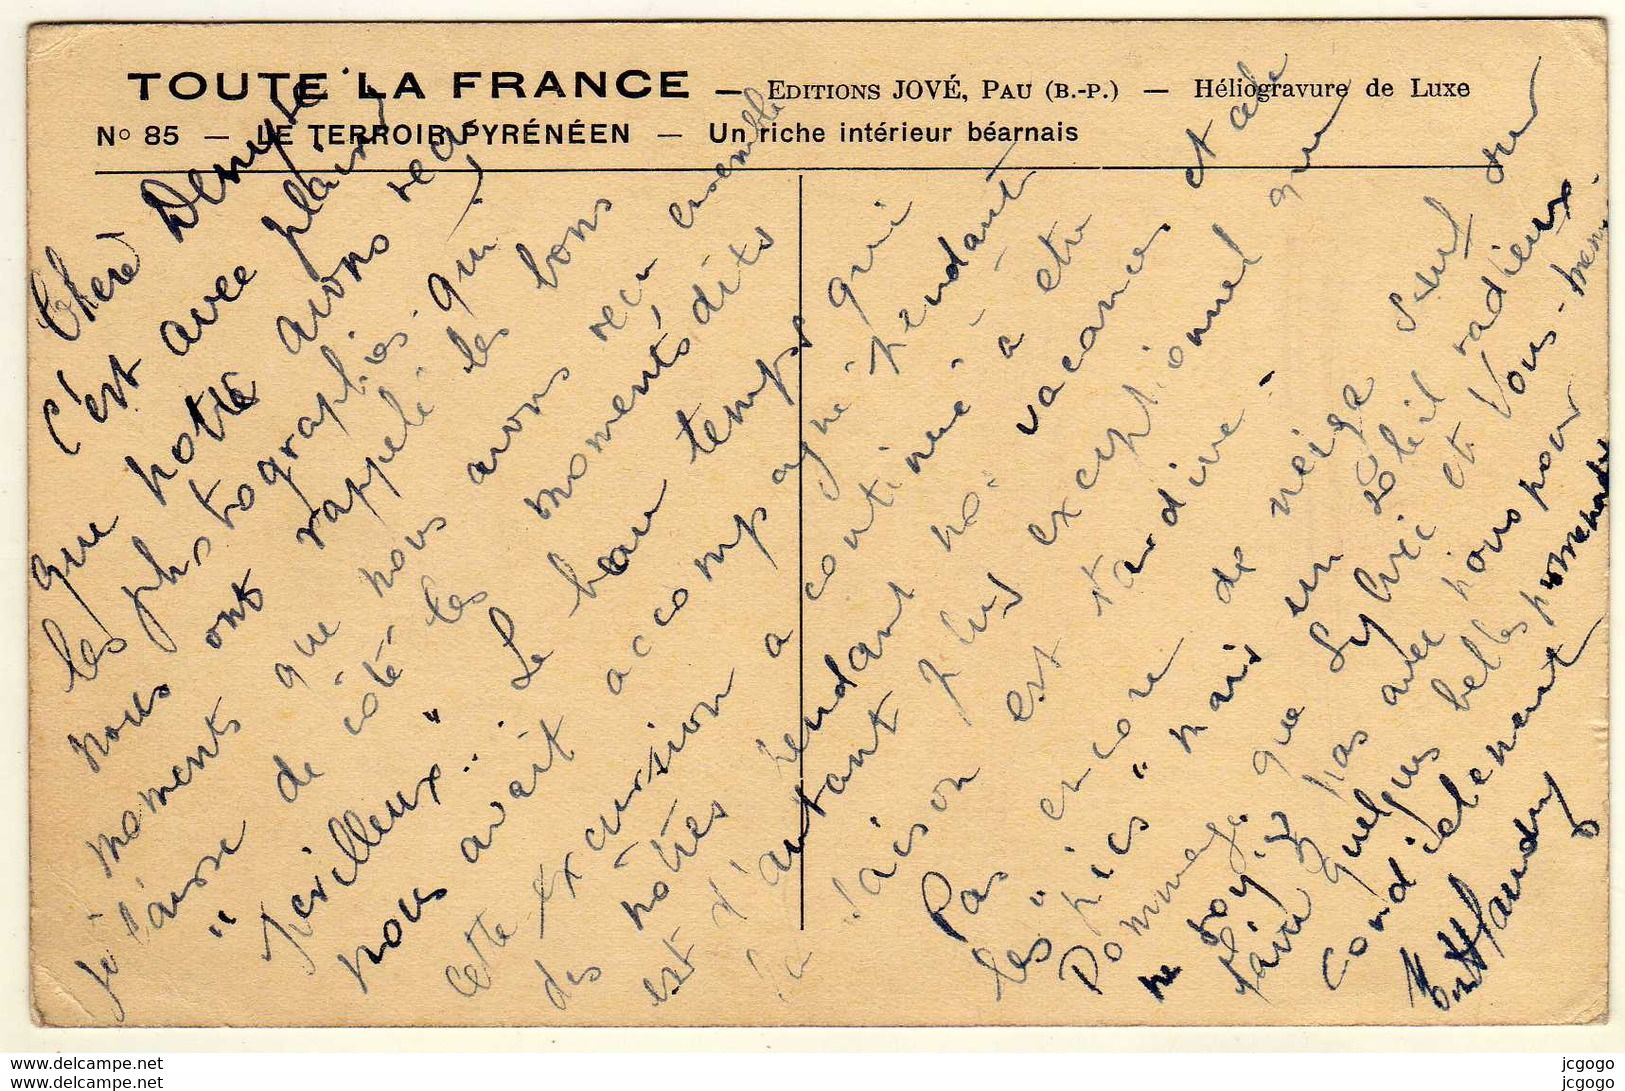 TOUTE LA FRANCE — EDITIONS JOVÉ, PAU (B.-P.) — Héliogravure de Luxe
N° 85 — LE TERROIR PYRÉNÉEN — Un riche intérieur béarnais
Chère Denyse
C'est avec plaisir
que notre avons reçu
les photographies qui
nous ont rappelé les bons
moments que nous avons reçu ensemble
je laisse de côté les moments dits
" périlleux". Le beau temps qui
nous avait accompagné pendant
cette excursion a continué à être
des nôtres pendant nos vacances et cela
est d'autant plus exceptionnel que
la saison est tardive -
Pas encore de neige sauf sur
les "pics" mais un soleil radieux.
Dommage que Sylvie et Vous-même
ne soyiez pas avec nous pour
faire quelques belles promenades
Cordialement
www.delcampe.net
www.delcampe.net
jcgogo
jcgogo